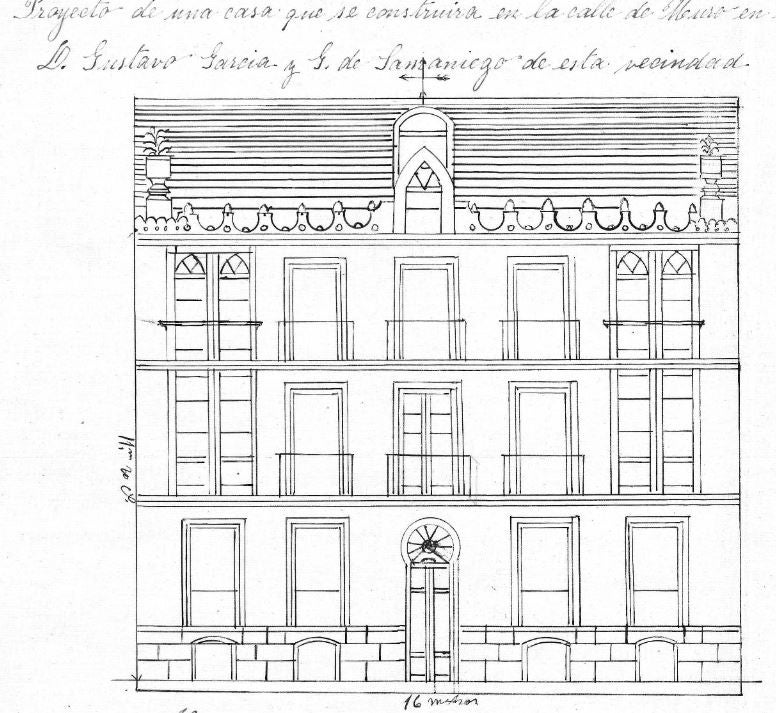 Proyecto de una casa que se construira en la calle de Muro en
D. Gustavo Garcia y G. de Samaniego de esta vecindad
16 metros